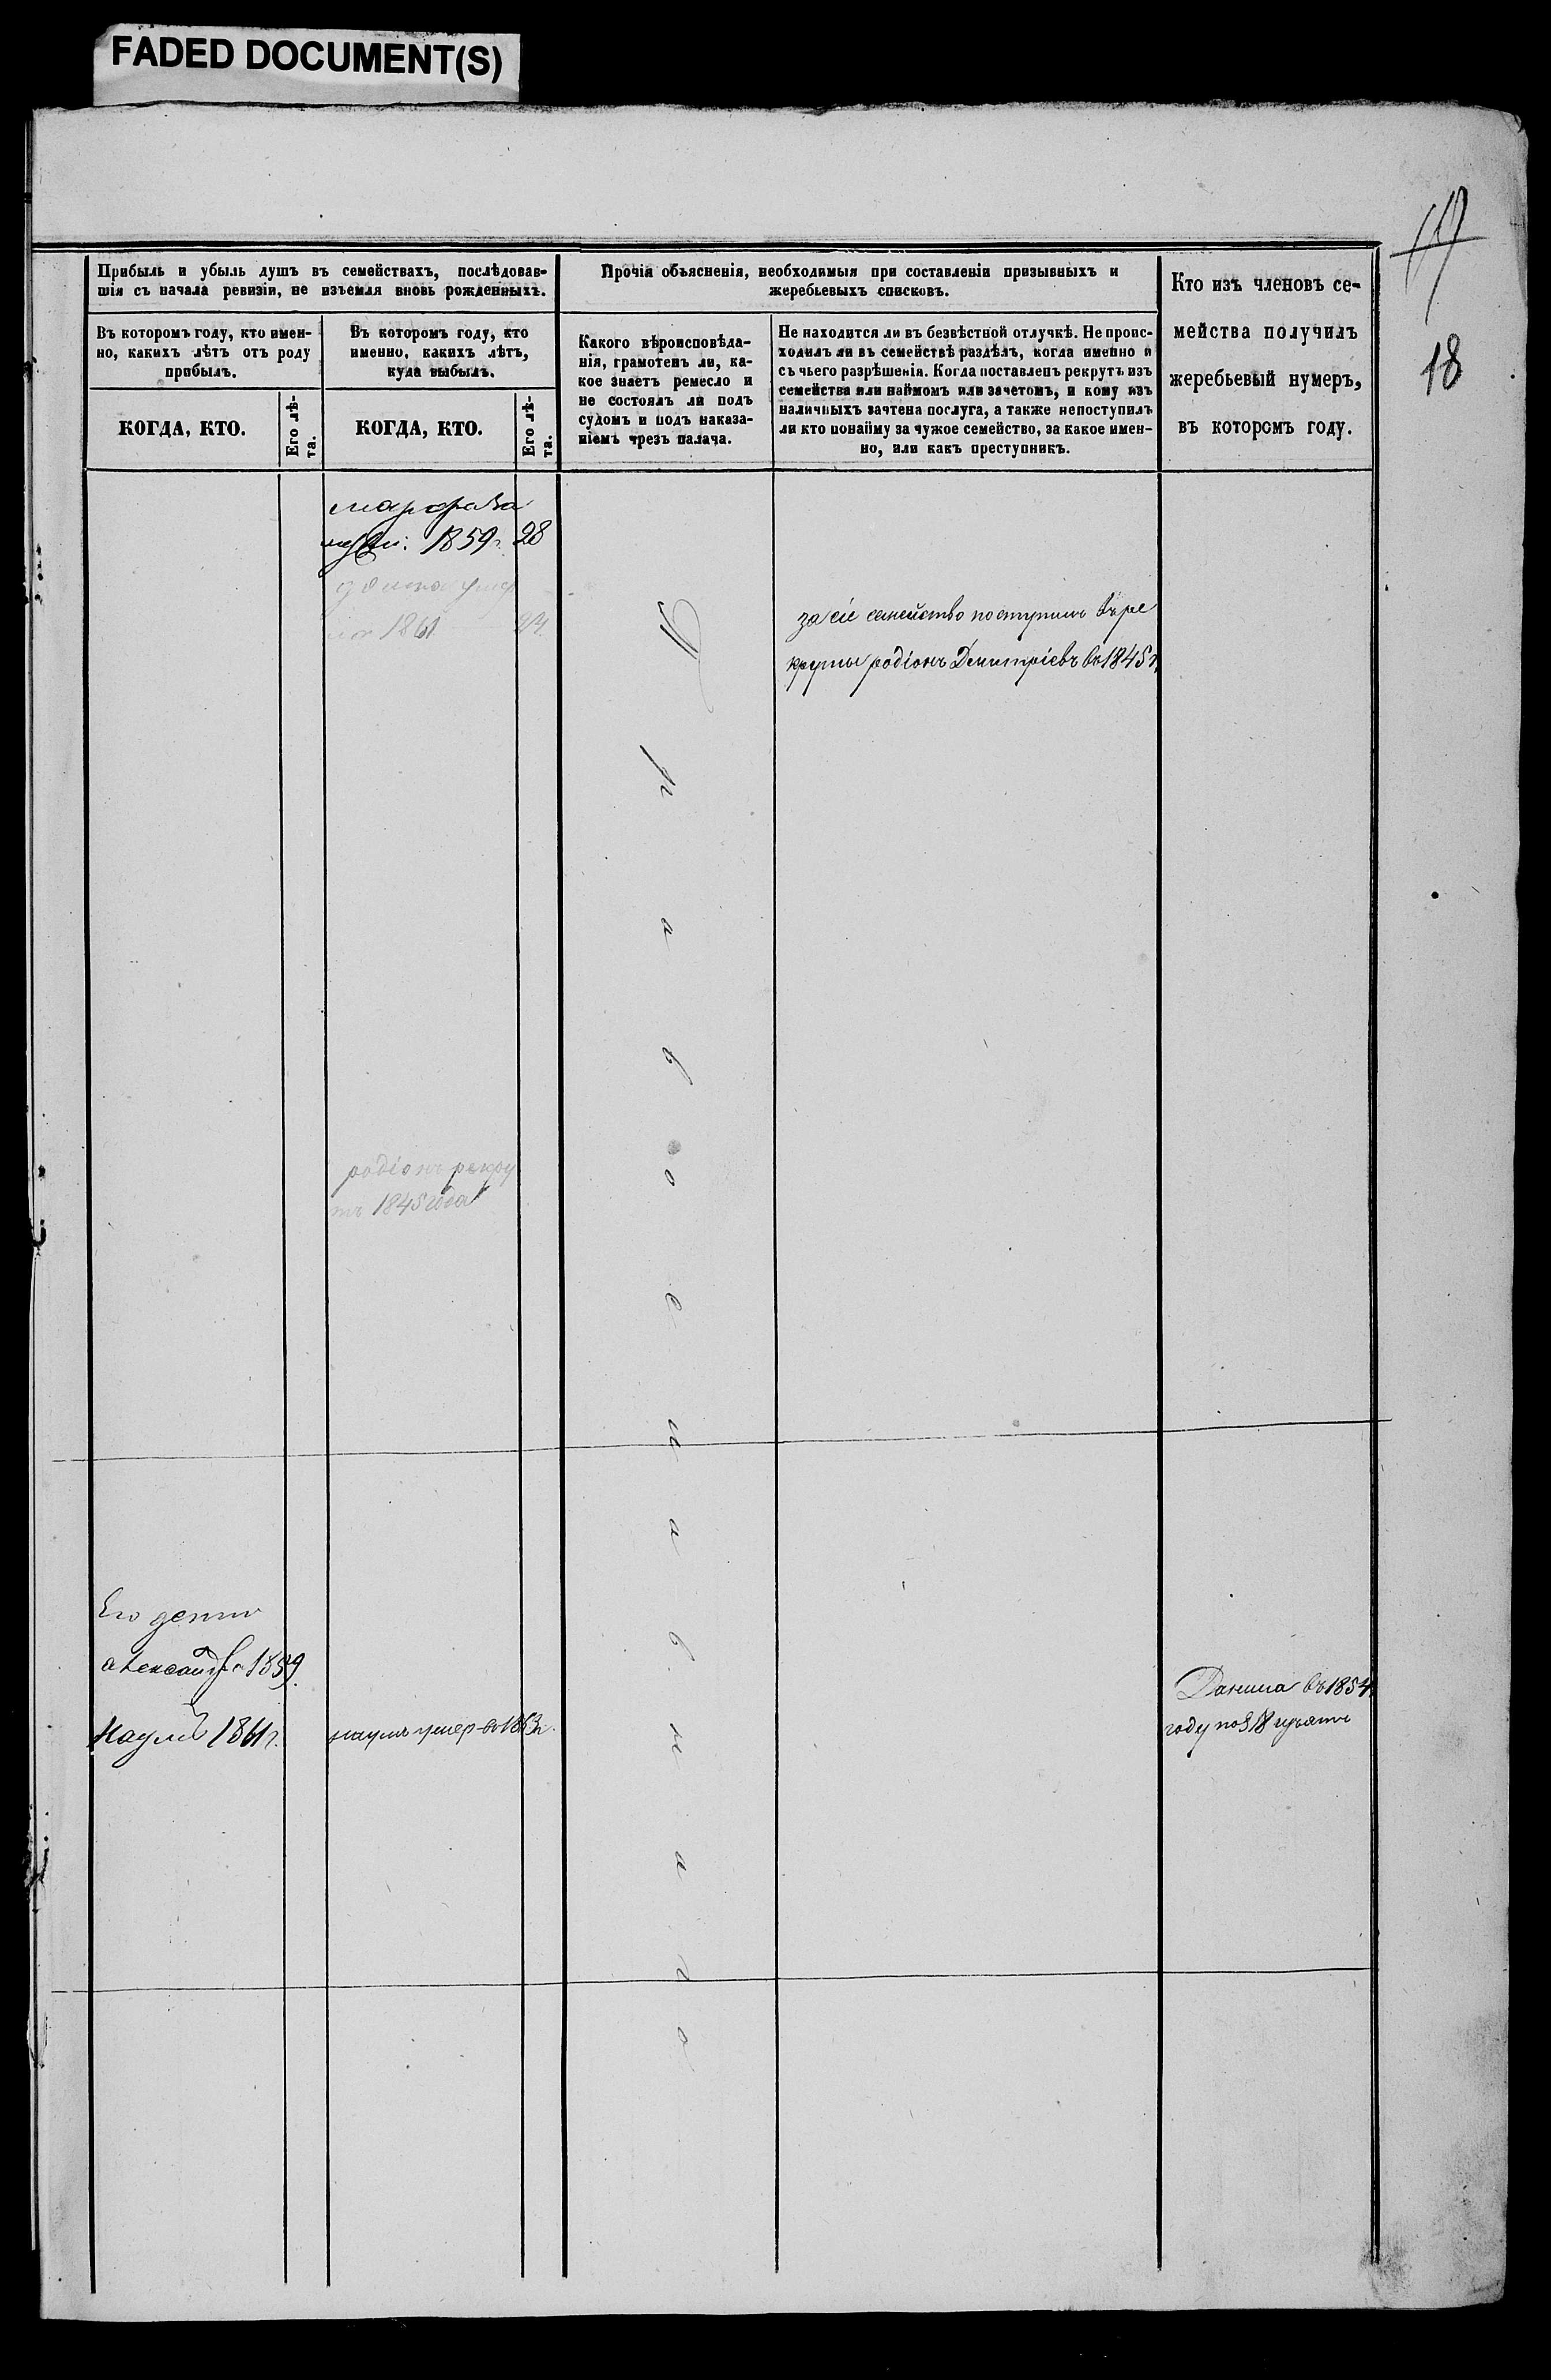 FADED DOCUMENT(S)
17
18
Прибыль и убыль душъ въ семействахъ, послѣдовав-
шія съ начала ревизіи, не изъемля вновь рожденныхъ.
Въ которомъ году, кто имен-
но, какихъ лѣтъ отъ роду
прибылъ.
Въ которомъ году, кто
именно, какихъ лѣтъ,
куда выбылъ.
КОГДА, КТО.
Его лѣ-
та.
КОГДА, КТО.
Его лѣ-
та.
Прочія объясненія, необходимыя при составленіи призывныхъ и
жеребьевыхъ списковъ.
Какого вѣроисповѣда-
нія, грамотенъ ли, ка-
кое знаетъ ремесло и
не состоялъ ли подъ
судомъ и подъ наказа-
ніемъ чрезъ палача.
Не находится ли въ безвѣстной отлучкѣ. Не проис-
ходилъ ли въ семействѣ раздѣлъ, когда именно и
съ чьего разрѣшенія. Когда поставленъ рекрутъ изъ
семейства или наймомъ или зачетомъ, и кому изъ
наличныхъ зачтена послуга, а также непоступилъ
ли кто понайму за чужое семейство, за какое имен-
но, или какъ преступникъ.
Кто изъ членовъ се-
мейства получилъ
жеребьевый нумеръ,
въ которомъ году.
марфа за
1859г. 28
1861 24
за сіе семейство поступилъ въ ре
круты родіонъ Дмитріевъ въ 1845г
Православнаго
родіонъ рекру
тъ 1845 года
Его дети
александра 1859.
Наумъ 1861г.
наумъ умер въ 1863г.
Данила въ 1854
году по 18 изъятъ